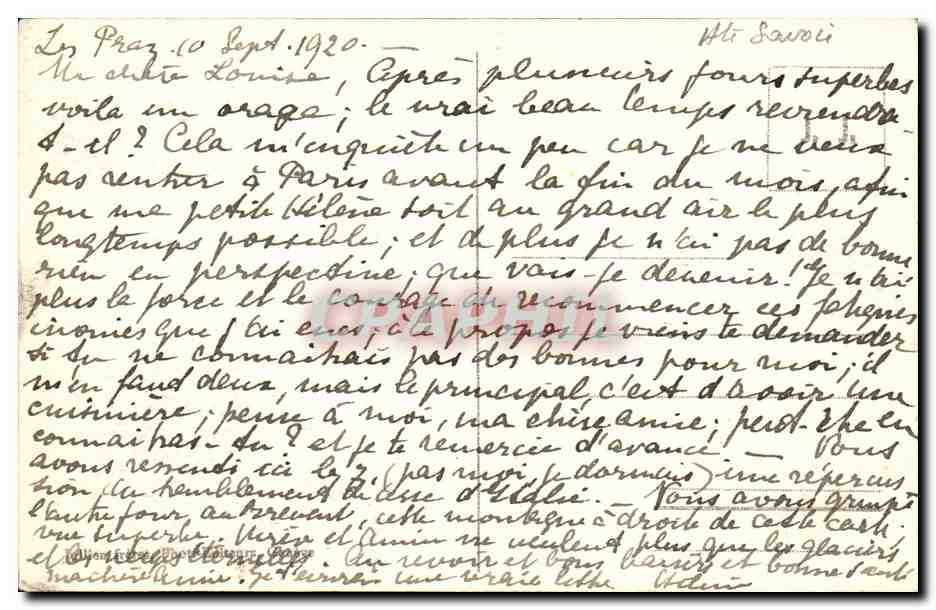 Les Praz 10 Sept. 1920. — Hte Savoie
Ma chère Louise, Après plusieurs jours superbes
voilà un orage ; le vrai beau temps reviendra
t-il ? Cela m'inquiète un peu car je ne veux
pas rentrer à Paris avant la fin du mois, afin
que ma petite Hélène soit au grand air le plus
longtemps possible ; et de plus je n'ai pas de bonne
rien en perspective ; que vais-je devenir ! Je n'ai
plus la force et le courage de recommencer ces fatigues
inouies que j'ai eues ; à ce propos je viens te demander
si tu ne connaitrais pas des bonnes pour moi ; il
m'en faud deux, mais le principal, c'est d'avoir une
cuisinière ; pense à moi, ma chère amie ; peut-être en
connaitras-tu ? et je te remercie d'avance — Nous
avons ressenti ici le 7, (pas moi je dormais) une répercus
sion du tremblement de terre d'Italie. — Nous avons grimpé
l'autre jour au Brévent, cette montagne à droite de cette carte,
vue superbe. et ne veulent plus que les glaciers
et les neiges éternelles. Au revoir et bons baisers et bonne santé
ma chère amie. Je t'écrirai une vraie lettre
Jullien frères, Phot-Editeurs, Genève
CPAPHIL